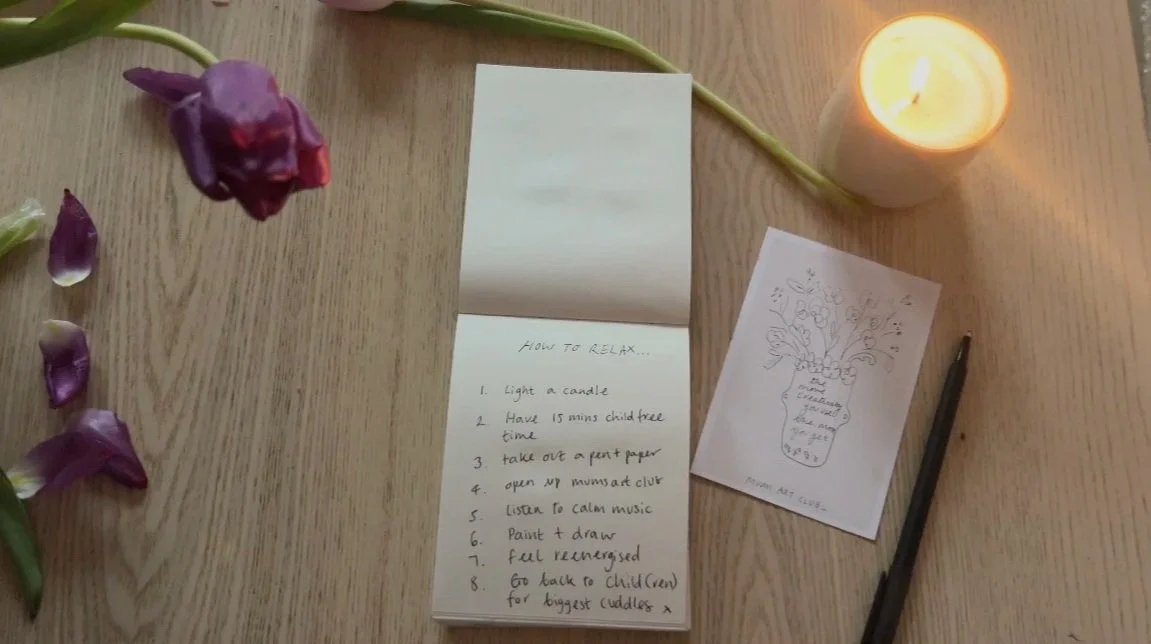 HOW TO RELAX...
1. Light a candle
2. Have 15 mins child free
time
3. take out a pen + paper
4. open up mums art club
5. Listen to calm music
6. Paint + draw
7. feel reenergised
8. Go back to child(ren)
for biggest cuddles x
the
more
creativity
you use
the more
you get
MUMS ART CLUB_